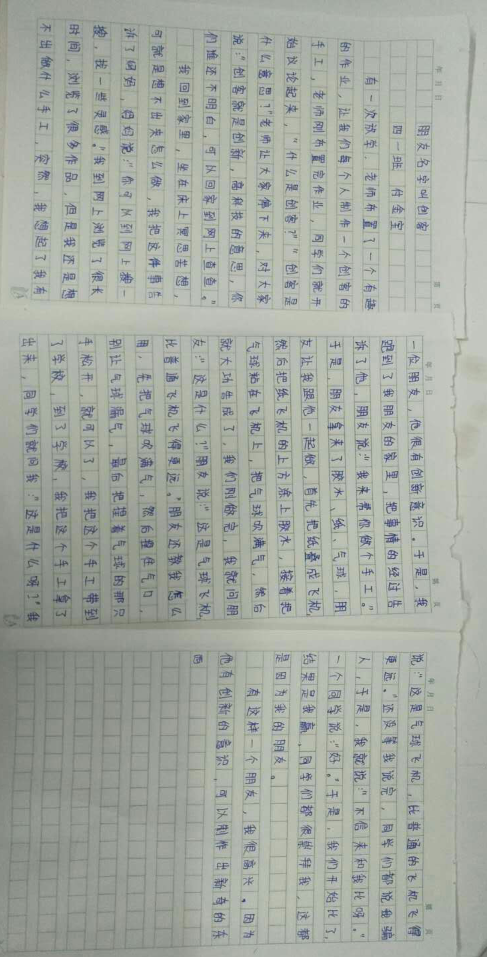 朋友名字叫创客
四一班 付金宝
有一次放学,老师布置了一个有趣
的作业,让我们每个人制作一个创客的
手工,老师刚布置完作业,同学们就开
始议论起来,“什么是创客?”“创客是
什么意思?”老师让大家停下来,对大家
说:“创客就是创新,高科技的意思,你
们谁还不明白,可以回家到网上查查。”
我回到家里,坐在床上冥思苦想,
可就是想不出来怎么做,我把这件事告
诉了妈妈,妈妈说:“你可以到网上搜一
搜,找一些灵感。”我到网上浏览了很长
时间,浏览了很多作品,但是我还是想
不出做什么手工,突然,我想起了我有
一位朋友,他很有创新意识。于是,我
跑到了我朋友的家里,把事情的经过告
诉了他,朋友说:“我来帮你做个手工。”
于是,朋友拿来了胶水、纸、气球,朋
友让我跟他一起做,首先把纸叠成飞机
然后把纸飞机的上方涂上胶水,接着把
气球粘在飞机上,把气球吹满气,最后
就大功告成了,我们刚做完,我就问朋
友:“这是什么?”朋友说:“这是气球飞机
比普通飞机飞得更远。”朋友还教我怎么
用,先把气球吹满气,然后捏住气口,
别让气球漏气,最后把捏着气球的那只
手松开,就可以了,我把这个手工带到
了学校,到了学校,我把这个手工拿了
出来,同学们就问我:“这是什么呀?”我
说:“这是气球飞机,比普通的飞机飞得
更远。”还没等我说完,同学们都说我骗
人,于是,我就说:“不信来和我比呀。”
一个同学说:“好。”于是,我们开始比了,
结果是我赢,同学们都很崇拜我,这都
是因为我的朋友。
有这样一个朋友,我很高兴。因为
他有创新的意识,可以制作出新奇的东
西